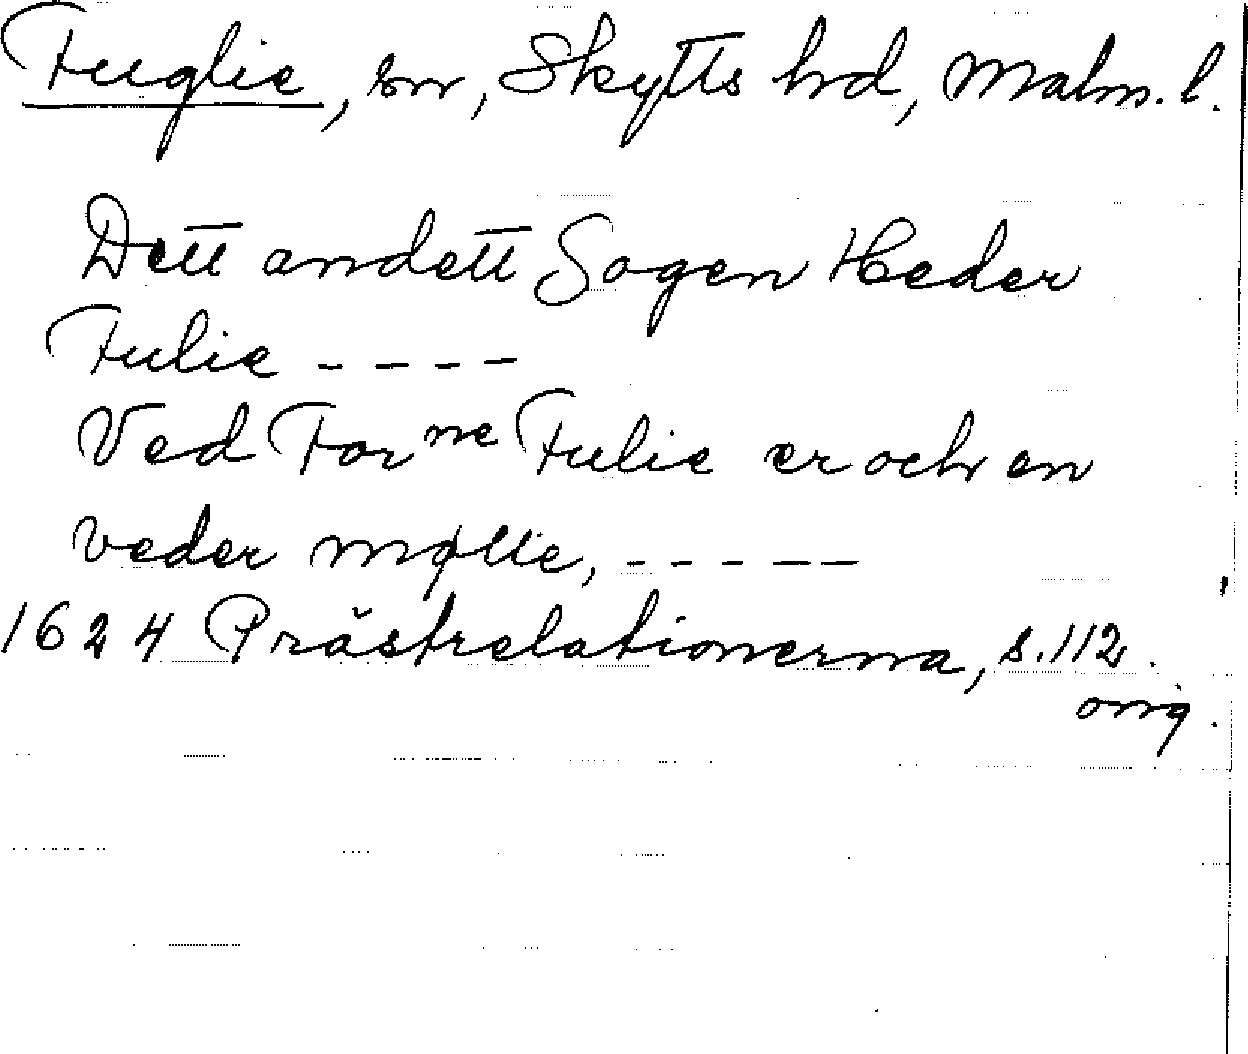 Fuglie, sn, Skytts hd, Malm. l.
Dett andett Sogen Heder
Fulie - - - -
Ved For ne Fulie er och en
veder mølle, - - - - -
1624 Prästrelationerna, s. 112.
orig.